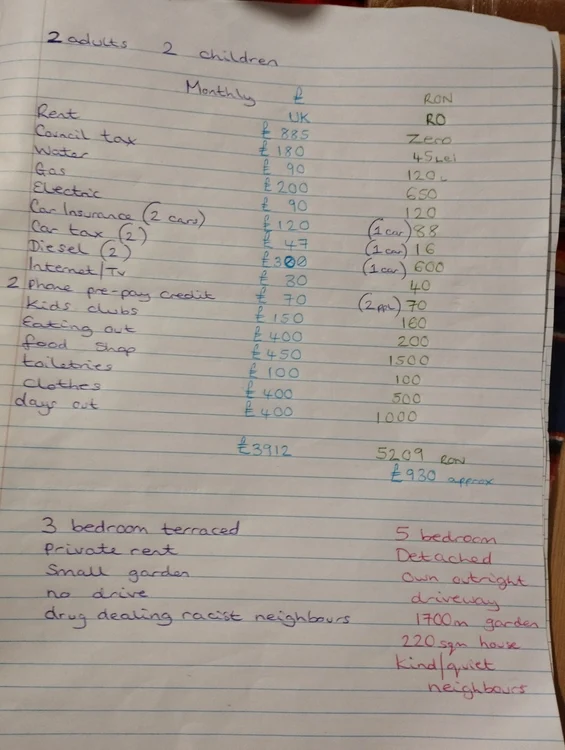 2 adults 2 children
Monthly £ RON
UK RO
Rent £885 Zero
Council tax £180 45 Lei
Water £90 120 L
Gas £200 650
Electric £90 120
Car Insurance (2 cars) £120 (1 car) 88
Car tax (2) £47 (1 car) 16
Diesel (2) £300 (1 car) 600
Internet/Tv £30 40
2 Phone pre-pay credit £70 (2ppl) 70
Kids clubs £150 160
Eating out £400 200
food shop £450 1500
toiletries £100 100
Clothes £400 500
days out £400 1000
£3912 5209 RON
£930 approx
3 bedroom terraced
Private rent
Small garden
no drive
drug dealing racist neighbours
5 bedroom
Detached
own outright
driveway
1700m garden
220 sqm house
Kind/quiet
neighbours